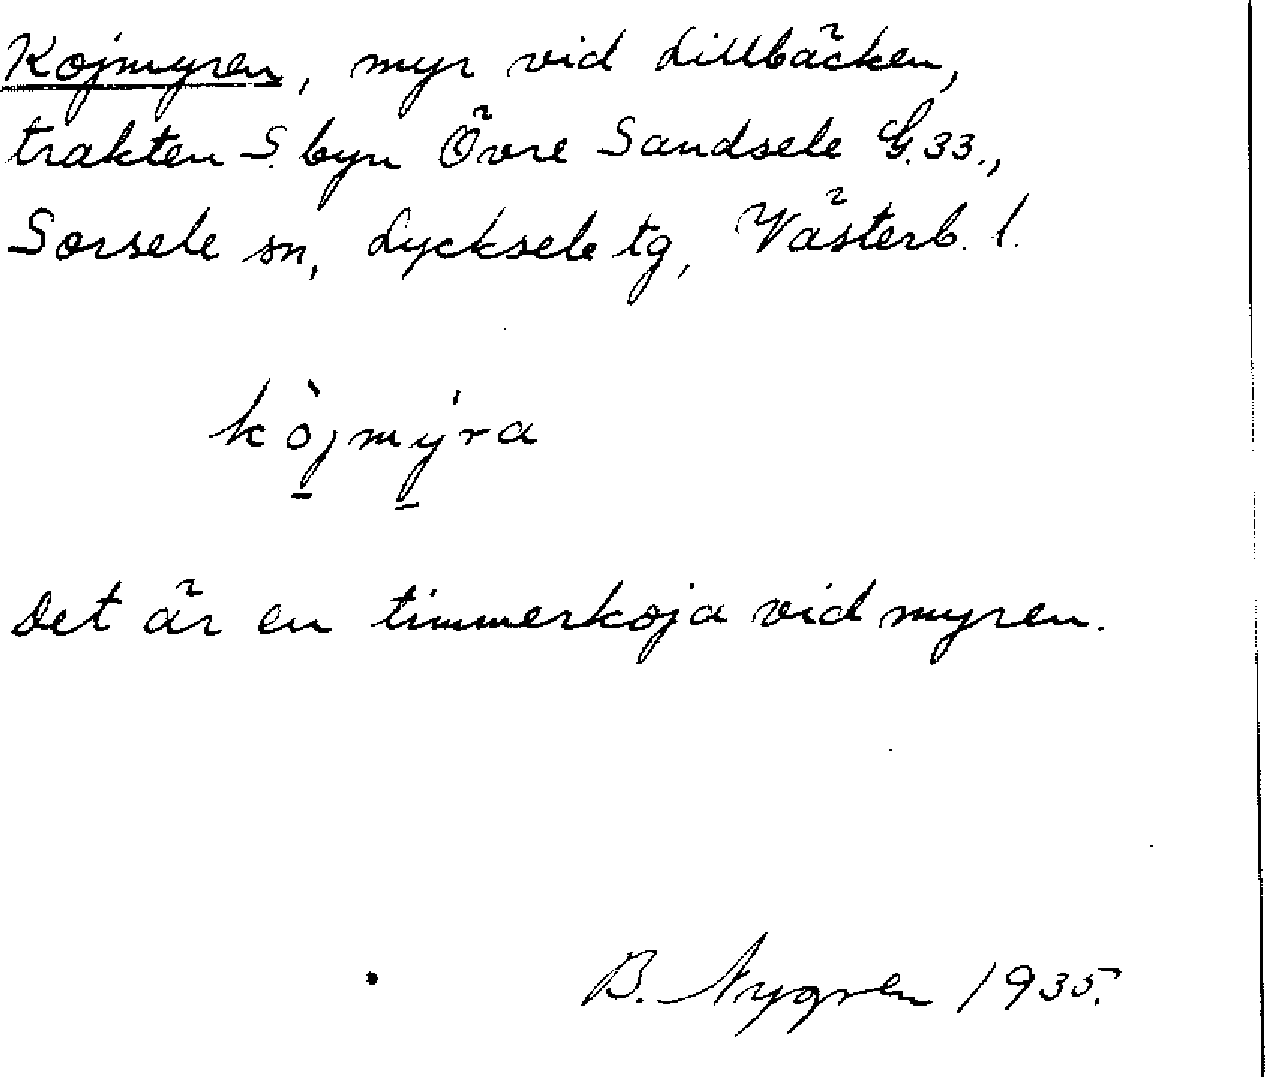 Kojmyren, myr vid Lillbäcken,
trakten S. byn Övre Sandsele G.33.,
Sorsele sn, Lycksele tg, Västerb. l.
kòjmýra
Det är en timmerkoja vid myren.
B. Nygren 1935.